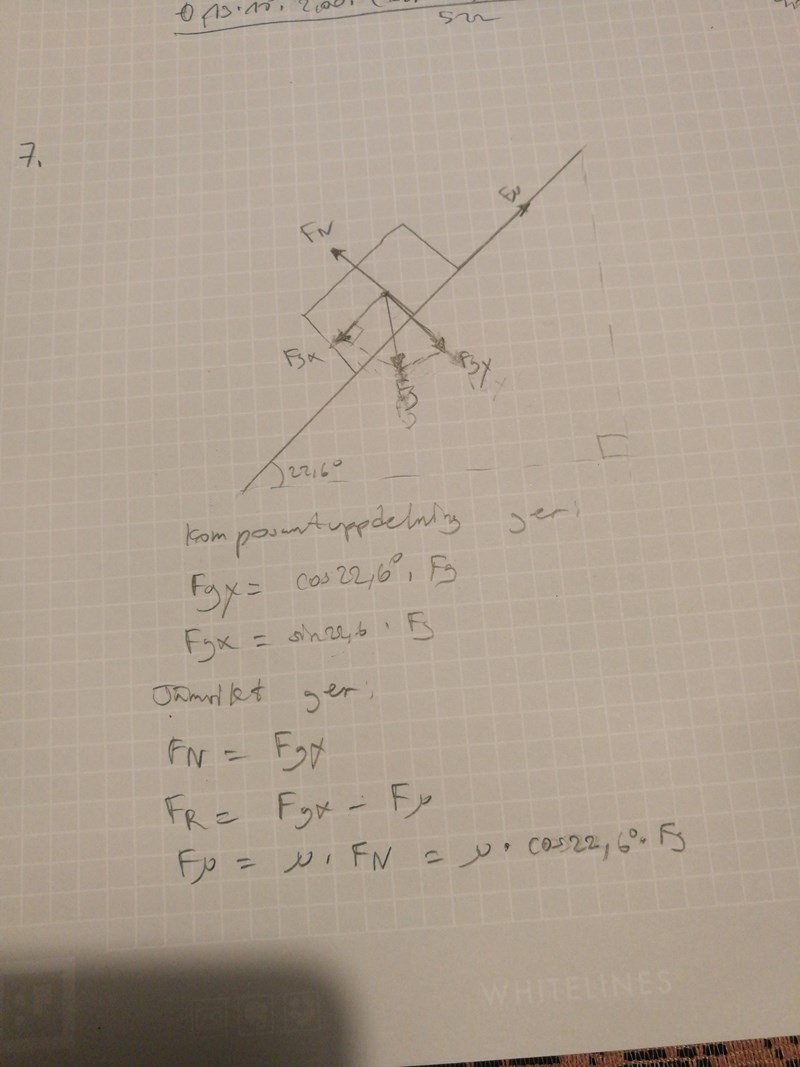 7.
Fμ
FN
Fgx
Fgy
Fg
22,6°
Komposantuppdelning ger:
Fgy = cos22,6° · Fg
Fgx = sin22,6 · Fg
Jämvikt ger:
FN = Fgy
FR = Fgx - Fμ
Fμ = μ · FN = μ · cos22,6° · Fg
WHITELINES